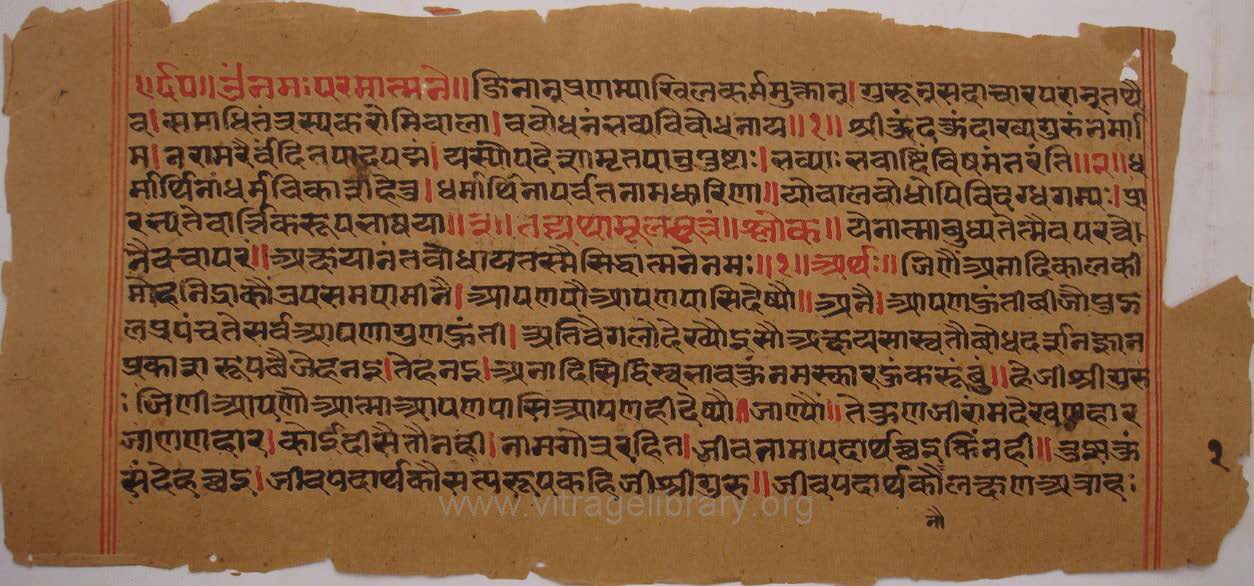 ॥र्दप॥ ॐ नमः परमात्मने॥ जिनान् प्रणम्याखिलकर्ममुक्तान्। गुरून् सदाचारपरान् तथै
व। समाधितंत्रस्य करोमि बाला। वबोधनं भव्यविबोधनाय॥१॥ श्री कुंदकुंदाख्यगुरुं नमामि
नरामरैर्वंदितपादपद्मं। यस्योपदेशामृतपानपुष्टाः। भव्याः भवाब्धिं विषमं तरंति॥२॥ ध
र्मार्थिनां धर्म्म धर्मार्थिना पर्वतनामधारिणा॥ यो बालबोधोपि विदग्धगम्यः। प्रा
रभ्यते वार्त्तिकरूपभाषया॥३॥ तद्यथा मूलसूत्रं॥ श्लोक॥ येनात्माबुध्यतेत्मैव परत्वे
नैव चापरं॥ अक्षयानंतबोधाय तस्मै सिद्धात्मने नमः॥१॥ अर्थः॥ जिणैं अनादिकालकी
मोहनिद्राकौ उपसम पामीनै। आपणपौ आपणपासि देष्यौ॥ अनै। आपणहुंती बीजौ पुद्ग
लप्रपंच ते सर्व आपणागुणहुंती। अतिवेगलो देख्यौ इसौ अक्षय सास्वतौ बोध दर्शन ज्ञान
प्रकाश रूप छै जेहनइ। तेहनइ। अनादिसिद्धिस्वभावकुं नमस्कार हुं करूं छुं॥ हे जी श्रीगुरु
: जिणी आपणौ आत्मा आपणपासि आपणही देष्यौ॥ जाण्यौ॥ देखणहार
जाणणहार। कोई दीसै तौ नही। नाम गोत्र रहित। जीवनामा पदार्थ छइ किं नही॥
संदेह छइ। जीवपदार्थकौ सत्यरूप कहि जी श्रीगुरु॥ जीवपदार्थकौ लक्षण
नौ
१
www.vitragelibrary.org